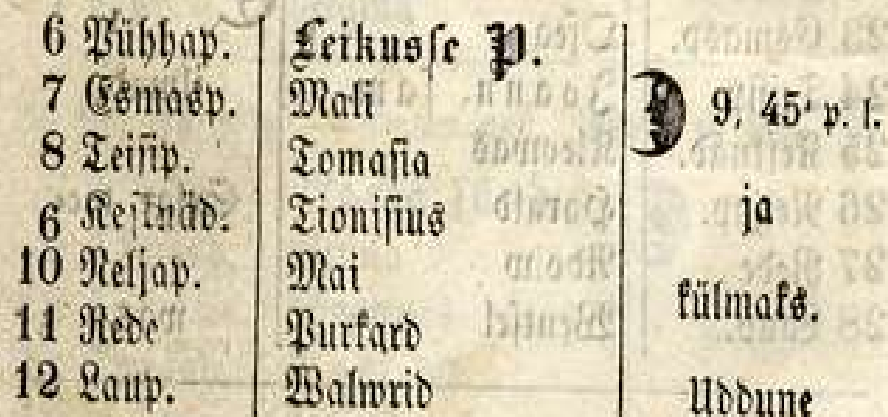 6 Pühhap. Leikusse P.
7 Esmasp. Mali 9, 45' p. l.
8 Teisip. Tomasia
6 Kesknäd. Tionisius ja
10 Neljap. Mai
11 Rede Purkard külmaks.
12 Laup. Walwrid Uddune